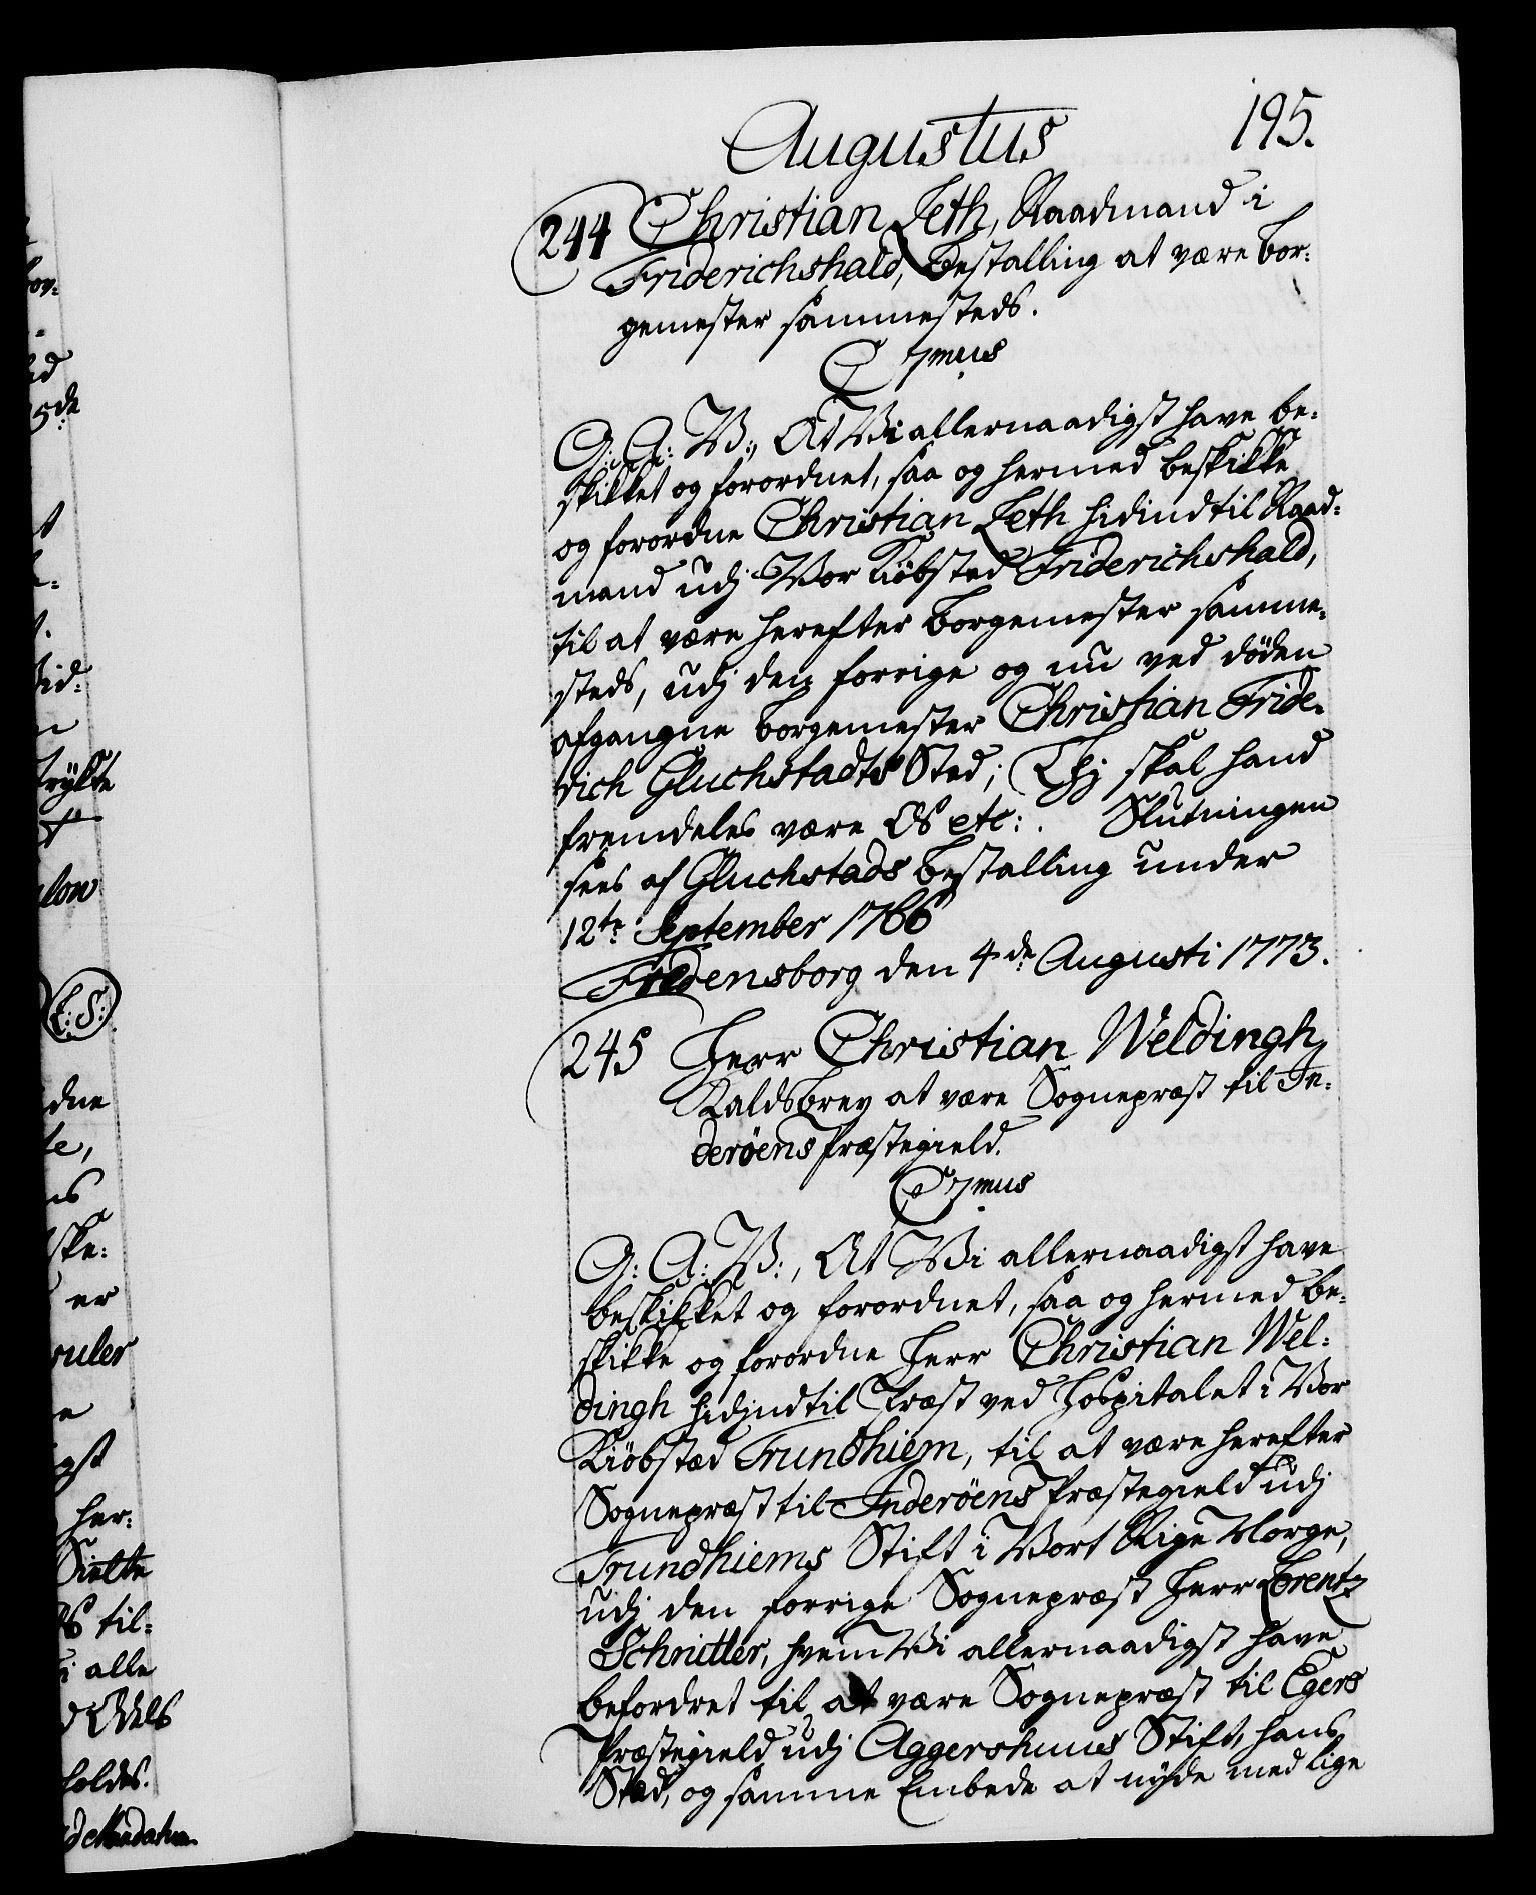 Augustus
195.
244 Christian Leth, Raadmand i
Friderichshald, Bestalling at være Bor:
gemester sammesteds.
C 7mus
G: A: V:, At Vi allernaadigst have be:
skikket og forordnet, saa og hermed beskikke
og forordne Christian Leth hidindtil Raad:
mand udj Vor Kiöbsted Friderichshald,
til at være herefter Borgemester samme:
steds, udj den forrige og nu ved döden
afgangne Borgemester Christian Fride:
rich Gluchstadts Sted; Thj skal hand
fremdeles være Os etc: . Slutningen
sees af Gluchstads Bestalling under
12te September 1766
Fredensborg den 4de Augusti 1773.
245 Herr Christian Weldingh
Kaldsbrev at være Sognepræst til In:
deröens Præstegield.
C 7mus
G: A: V:, At Vi allernaadigst have
beskikket og forordnet, saa og hermed be:
skikke og forordne Herr Christian Wel:
dingh hidindtil Præst ved Hospitalet i Vor
Kiöbstæd Trundhiem, til at være herefter
Sognepræst til Inderöens Præstegield udj
Trundhiems Stift i Vort Rige Norge,
udj den forrige Sognepræst Herr Lorentz
Schnitler, hvem Vi allernaadigst have
befordret til at være Sognepræst til Egers
Præstegield udj Aggershuus Stift, hans
Sted, og samme Embede at nyde med lige